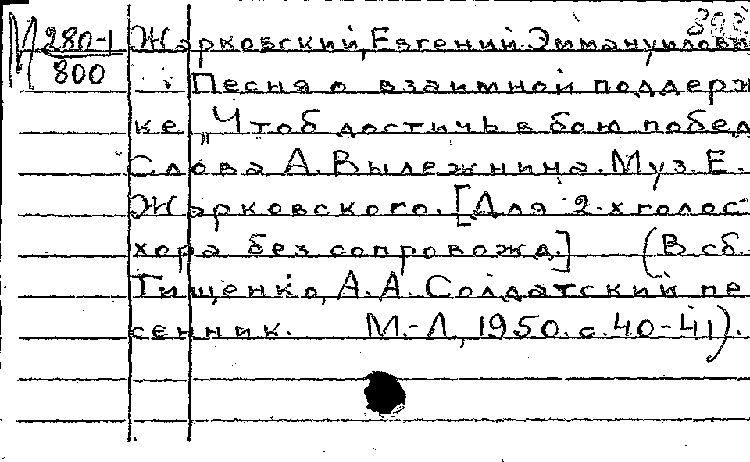 М 280-1 Жарковский, Евгений Эммануилови
800 Песня о взаимной поддерж
ке „Чтоб достичь в бою побед
Слова А. Вылежнина. Муз. Е.
Жарковского. [Для 2-х голос
хора без сопровожд.] (В сб.
Тищенко, А. А. Солдатский пе
сенник. М.-Л, 1950. с. 40-41).